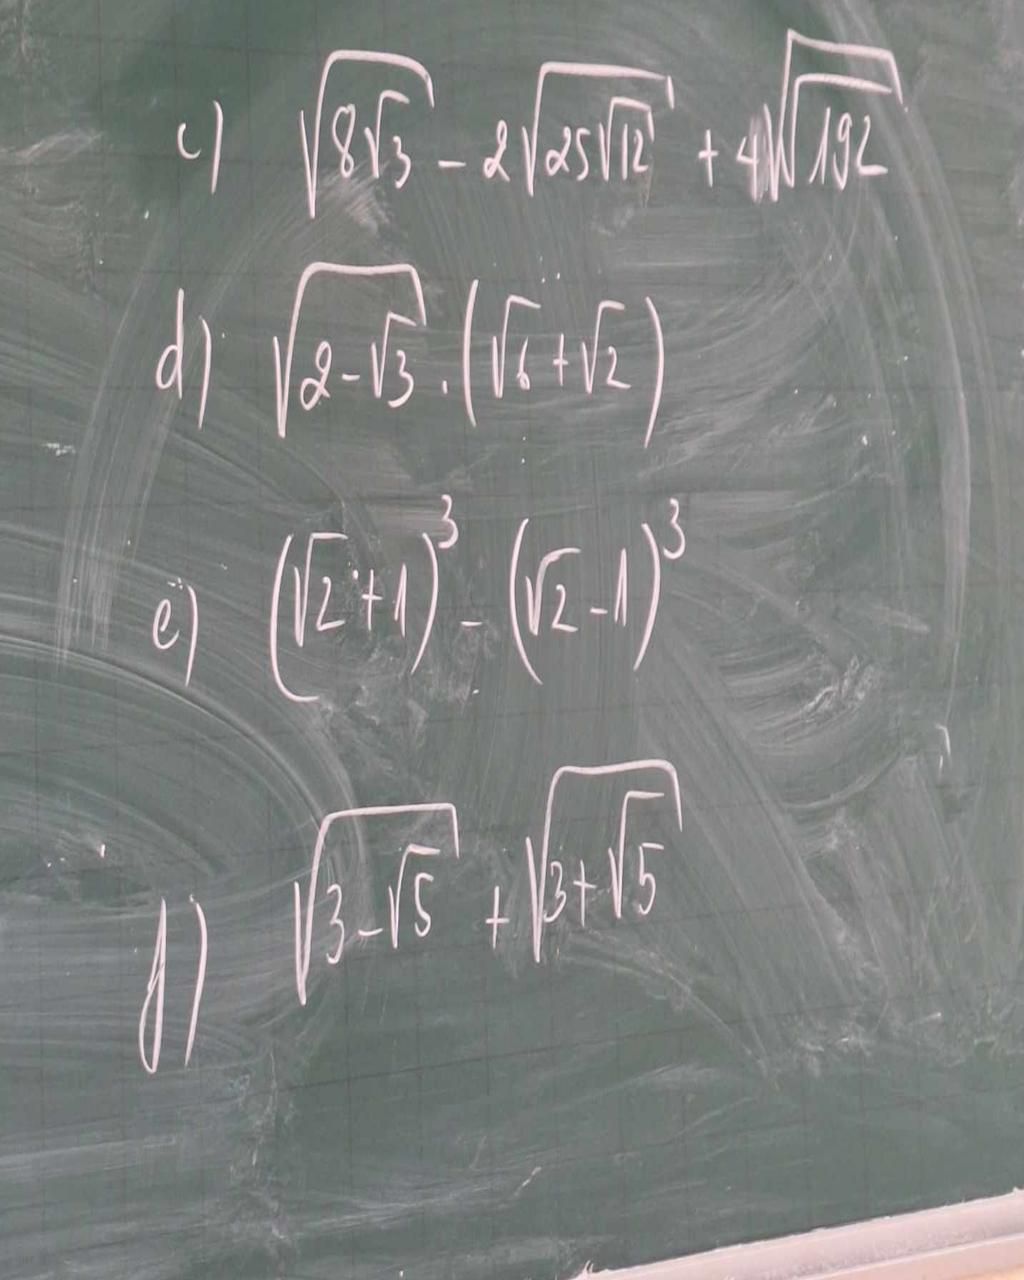 c) √(8√3) - 2√(25√12) + 4√(√192)
d) √(2-√3) . (√6 + √2)
e) (√2 + 1)³ - (√2 - 1)³
f) √(3-√5) + √(3+√5)